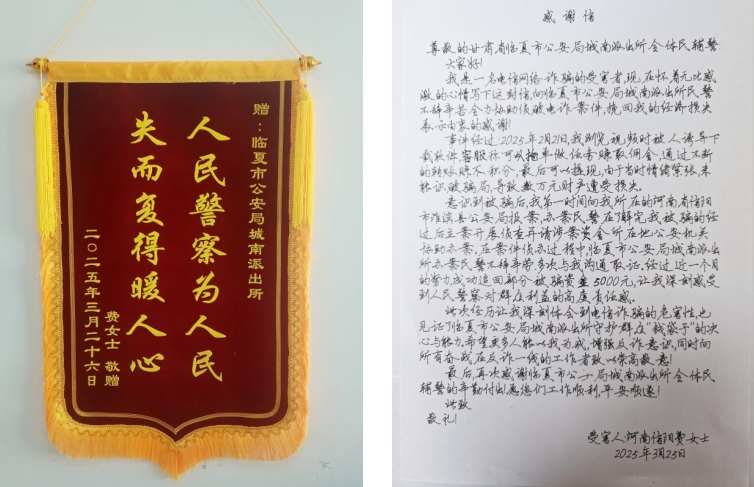 赠：临夏市公安局城南派出所
人民警察为人民
失而复得暖人心
二〇二五年三月二十六日
费女士 敬赠
感谢信
尊敬的甘肃省临夏市公安局城南派出所全体民辅警
大家好!
我是一名电信网络诈骗的受害者,现在怀着无比感
激的心情写下这封信,向临夏市公安局城南派出所民警
不辞辛苦全力协助侦破电诈案件,挽回我的经济损失
表示由衷的感谢!
事件经过,2025年2月21日,我浏览视频时被人诱导下
载软件,客服称可以抢单做任务赚取佣金,通过不断
的转账赚不积分,最后可以提现,由于当时情绪紧张,未
能识破骗局,导致数万元财产遭受损失。
意识到被骗后,我第一时间向我所在的河南省信阳
市潢川县公安局报案,办案民警在了解完我被骗的经
过后立案开展侦查并请涉案资金所在地公安机关
协助办案,在案件侦办过程中,临夏市公安局城南派出
所办案民警不辞辛劳多次与我沟通取证,经过近一个月
的努力,成功追回部分被骗资金5000元,让我深刻感受
到人民警察对群众利益的高度责任感。
此次经历让我深刻体会到电信诈骗的危害性,也
见证了临夏市公安局城南派出所守护群众"钱袋子"的决
心与能力,希望更多人能以我为戒,增强反诈意识,同时向
所有奋战在反诈一线的工作者致以崇高敬意!
最后,再次感谢临夏市公安局城南派出所全体民
辅警的辛勤付出,愿您们工作顺利,平安顺遂!
此致
敬礼!
受害人:河南信阳费女士
2025年3月25日